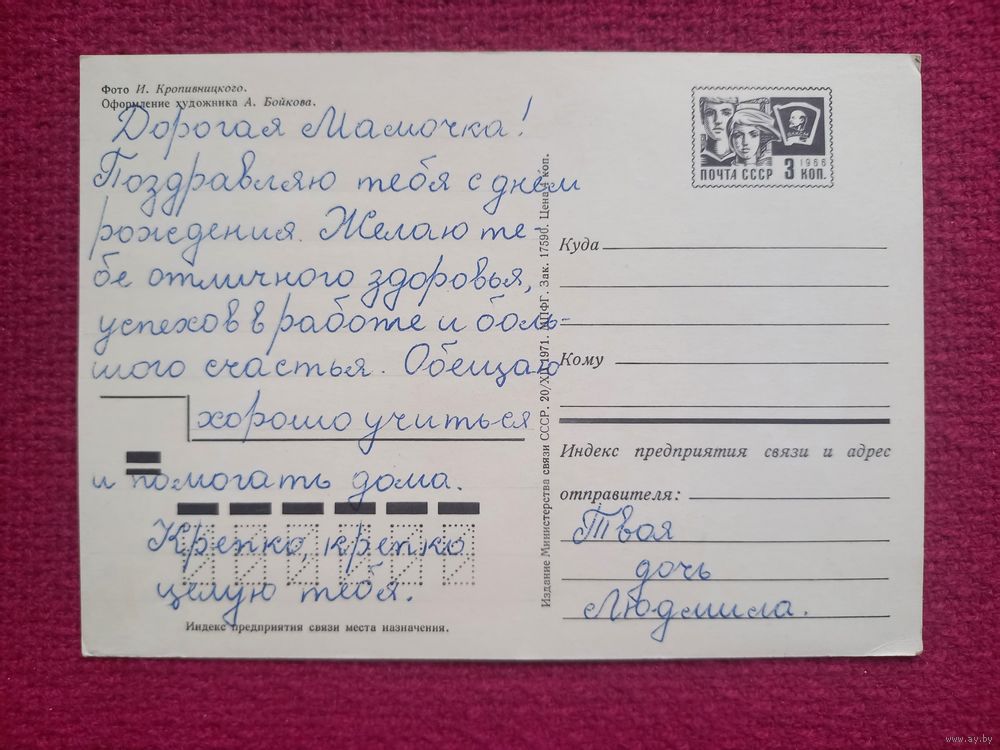 Фото И. Кропивницкого.
Оформление художника А. Бойкова.
Дорогая Мамочка!
Поздравляю тебя с днём
рождения. Желаю те-
бе отличного здоровья,
успехов в работе и боль-
шого счастья. Обещаю
хорошо учиться
и помогать дома.
Крепко, крепко
целую тебя.
Индекс предприятия связи места назначения.
Издание Министерства связи СССР. 20/XII 1971. МПФГ. Зак. 17590. Цена 4 коп.
ВЛКСМ
1966
ПОЧТА СССР 3 КОП.
Куда
Кому
Индекс предприятия связи и адрес
отправителя:
Твоя
дочь
Людмила.
www.ay.by